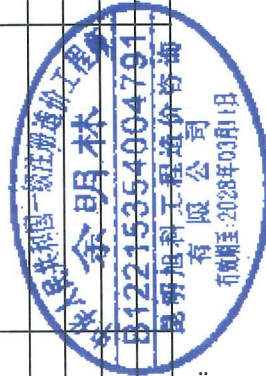 中华人民共和国一级注册造价工程师
余明林
B12215354004791
昆明旭科工程造价咨询
有限公司
有效期至:2028年03月11日